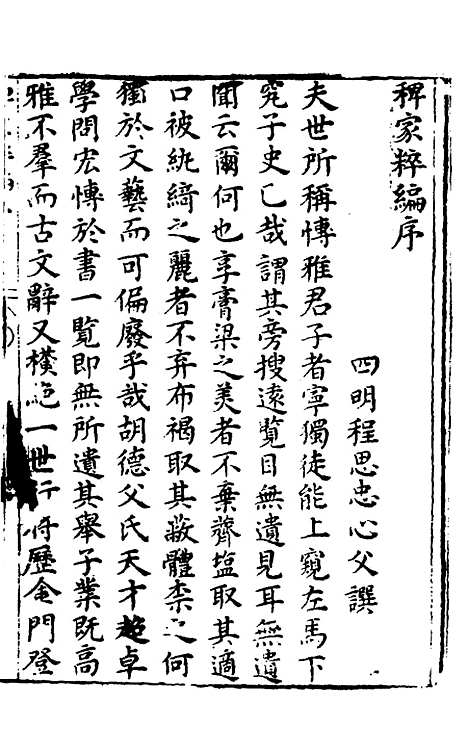 稗家粹編序
四明程思忠心父譔
夫世所稱愽雅君子者寧獨徒能上窺左馬下
究子史已哉謂其旁搜遠覽目無遺見耳無遺
聞云爾何也享膏梁之美者不棄虀塩取其適
口被紈綺之麗者不弃布褐取其蔽體柰之何
獨於文藝而可偏廢乎哉胡德父氏天才超卓
學問宏愽於書一覧即無所遺其舉子業既高
雅不羣而古文辭又橫絕一世行將歷金門登